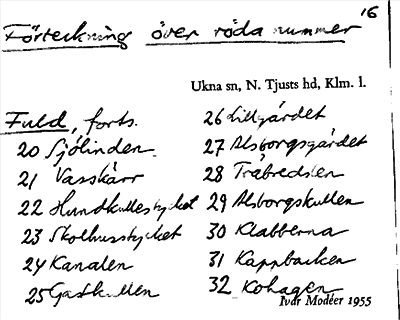 16
Förteckning över röda nummer
Ukna sn, N. Tjusts hd, Klm. l.
Fuld, forts.
20 Sjölinden
21 Vasskärr
22 Hundkullestycket
23 Skolhusstycket
24 Kanalen
25 Gatkullen
26 Lillgärdet
27 Alsborgsgärdet
28 Träbredslen
29 Alsborgskullen
30 Klabberna
31 Kappbacken
32 Kohagen
Ivar Modéer 1955